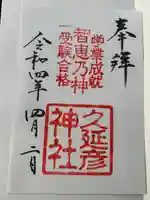 奉拝
学業成就
智恵乃神
受験合格
久延彦
神社
令和四年四月二日